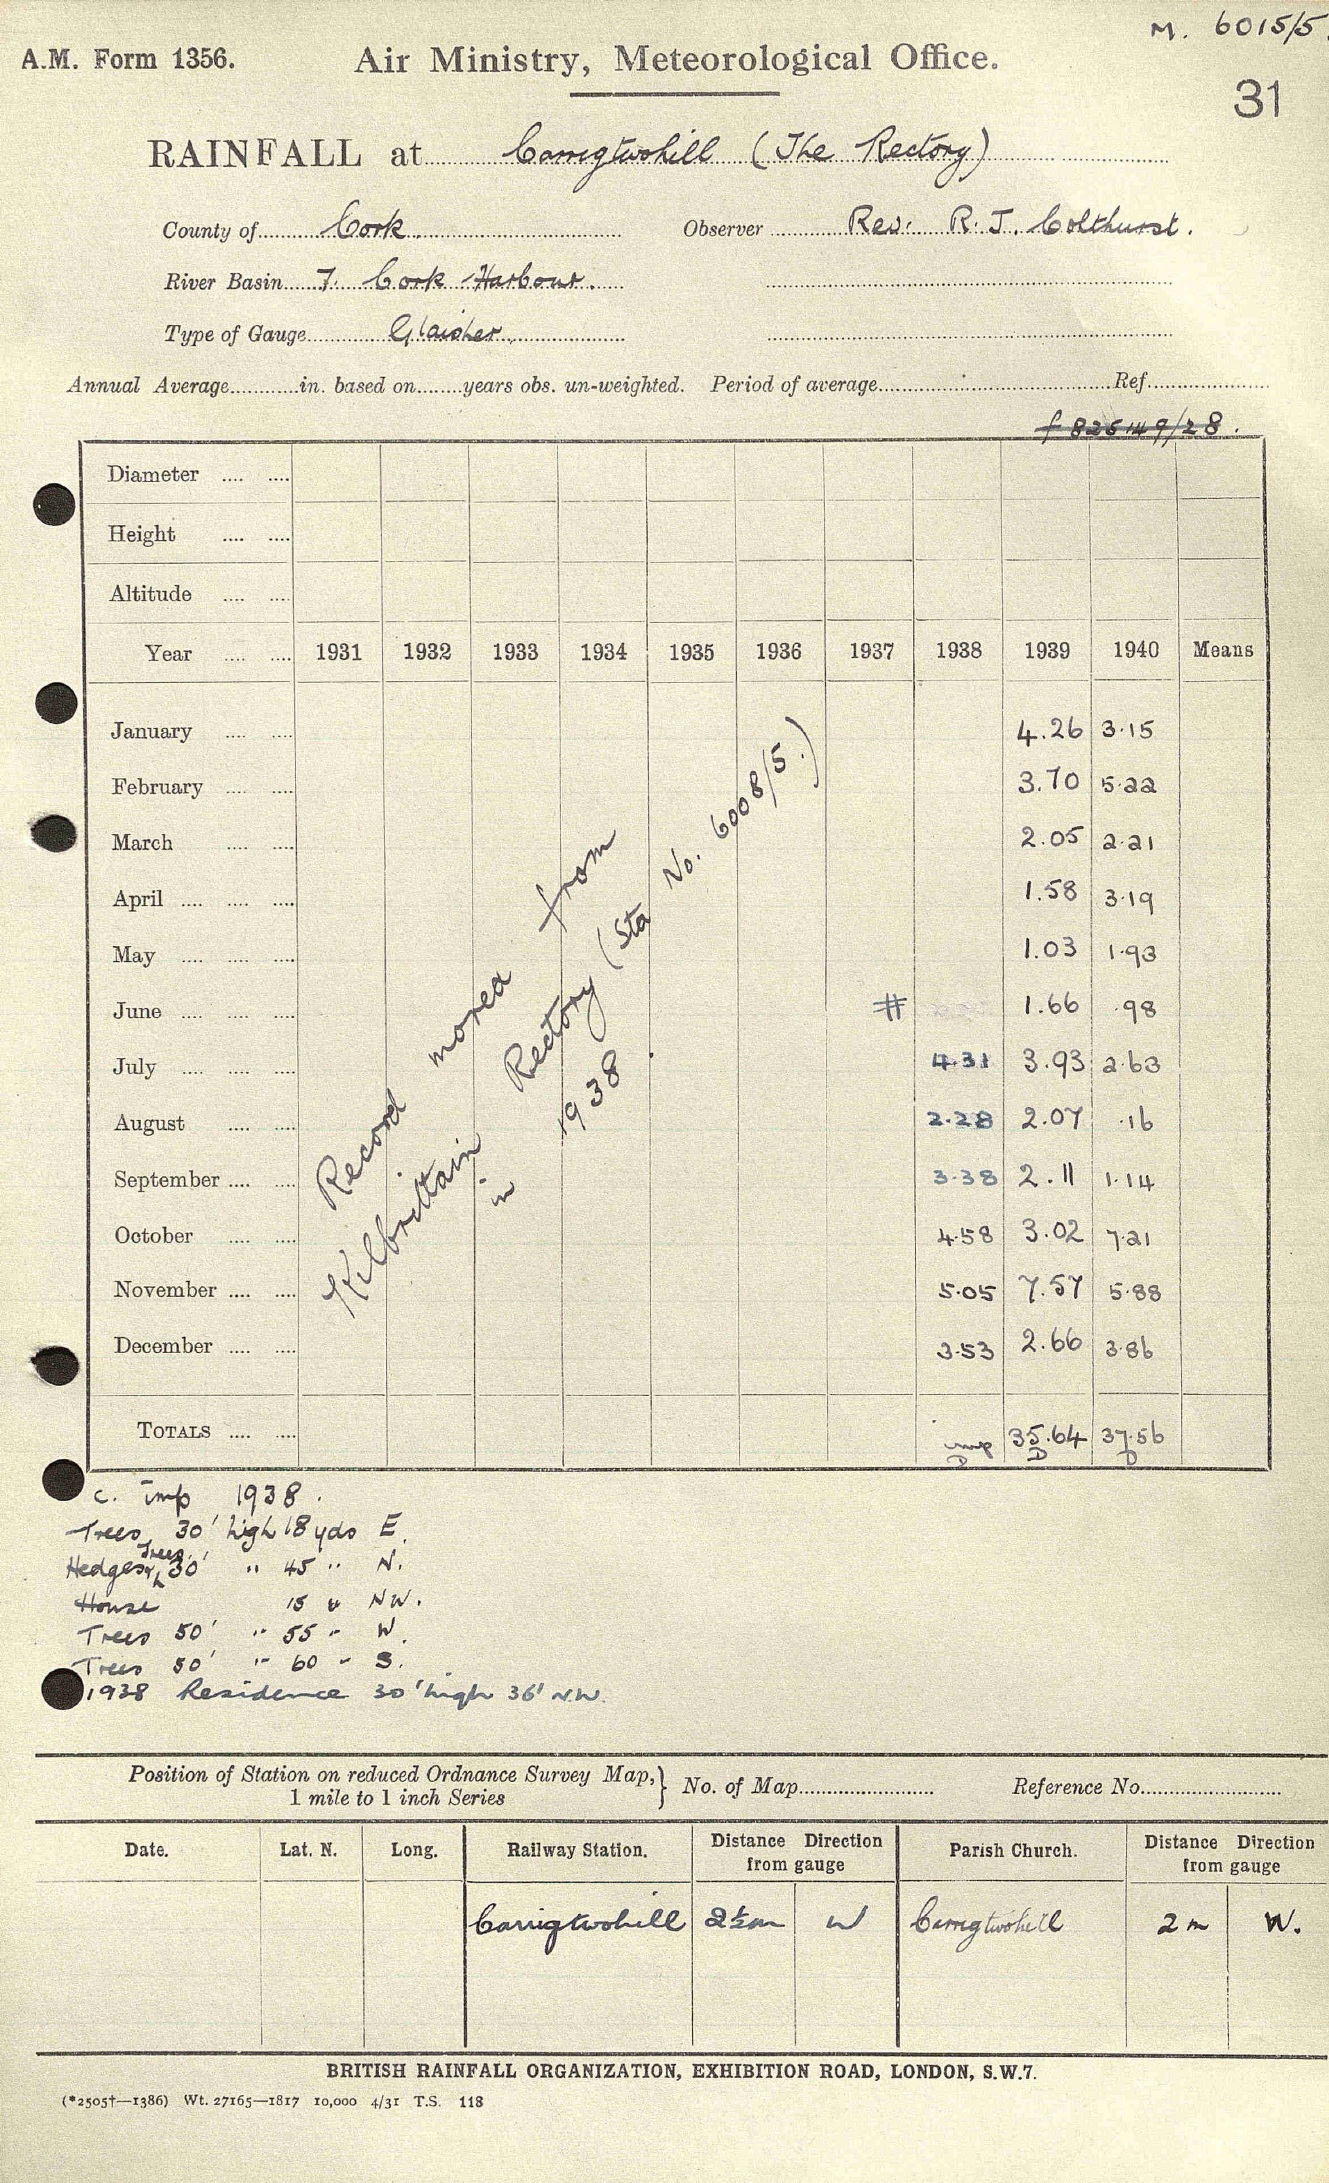 M. 6015/5.
A.M. Form 1356. Air Ministry, Meteorological Office.
31
RAINFALL at Carrigtwohill (The Rectory)
County of Cork Observer Rev. R. J. Colthurst.
River Basin 7. Cork Harbour.
Type of Gauge Glaisher
Annual Average in. based on years obs. un-weighted. Period of average Ref.
f 826149/28.
Diameter
Height
Altitude
Year 1931 1932 1933 1934 1935 1936 1937 1938 1939 1940 Means
January 4.26 3.15
February 3.70 5.22
March 2.05 2.21
April 1.58 3.19
May 1.03 1.93
June # 1.66 .98
July 4.31 3.93 2.63
August 2.28 2.07 .16
September 3.38 2.11 1.14
October 4.58 3.02 7.21
November 5.05 7.57 5.88
December 3.53 2.66 3.86
TOTALS imp 35.64 37.56
D D D
Record moved from
Kilbrittain Rectory (Sta No. 6008/5.)
in 1938.
c. imp 1938.
Trees 30' high 18 yds E.
Hedges & Trees 30' " 45 " N.
House 15 " NW.
Trees 50' " 55 " W.
Trees 50' " 60 " S.
1938 Residence 30' high 36' N.W.
Position of Station on reduced Ordnance Survey Map, } No. of Map Reference No.
1 mile to 1 inch Series
Date. Lat. N. Long. Railway Station. Distance Direction from gauge Parish Church. Distance Direction from gauge
Carrigtwohill 2½m W Carrigtwohill 2 m W.
BRITISH RAINFALL ORGANIZATION, EXHIBITION ROAD, LONDON, S.W.7.
(*2505†—1386) Wt. 27165—1817 10,000 4/31 T.S. 118